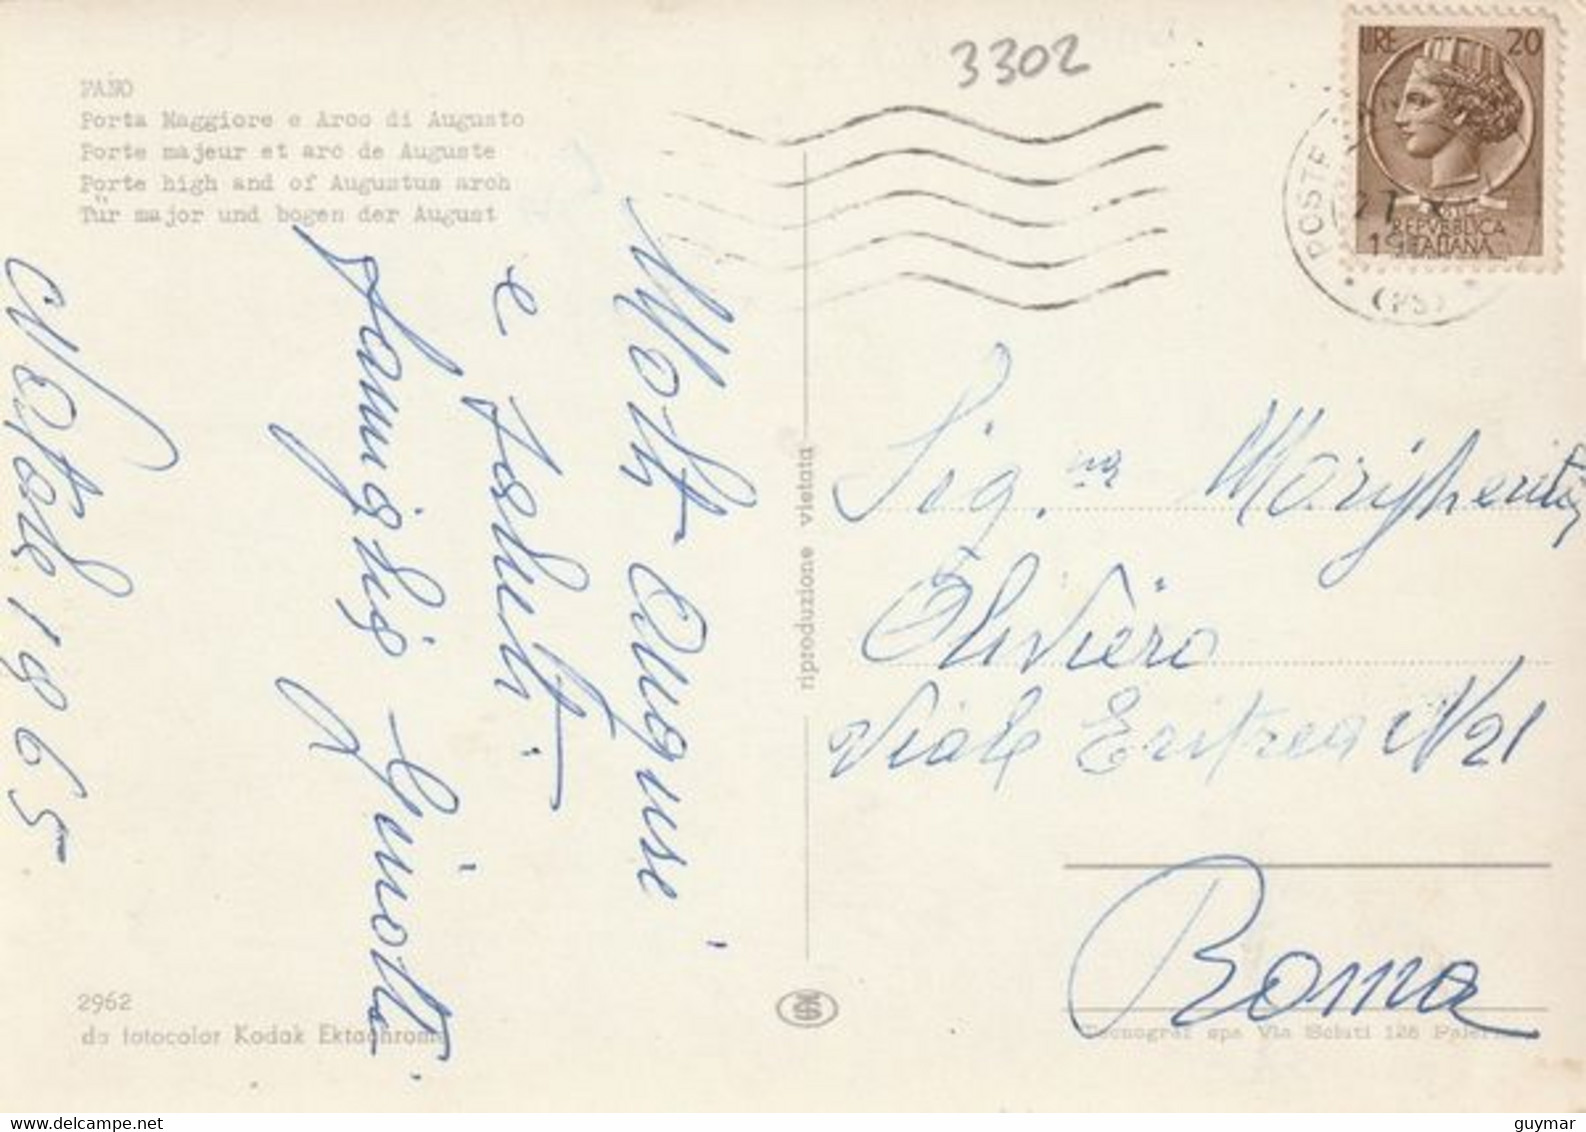 FANO
Porta Maggiore e Arco di Augusto
Porte majeur et arc de Auguste
Porte high and of Augustus arch
Tür major und bogen der August
3302
LIRE 20
REPVBBLICA
ITALIANA
POSTE
(PS)
Molti Auguri
e saluti
Famiglia Giinotti
Natale 1965
riproduzione vietata
Sig.na Margherita
Oliviero
Viale Eritrea N 21
Roma
2962
da fotocolor Kodak Ektachrome
Tecnograf spa Via Sciuti 126 Palermo
delcampe.net
guymar